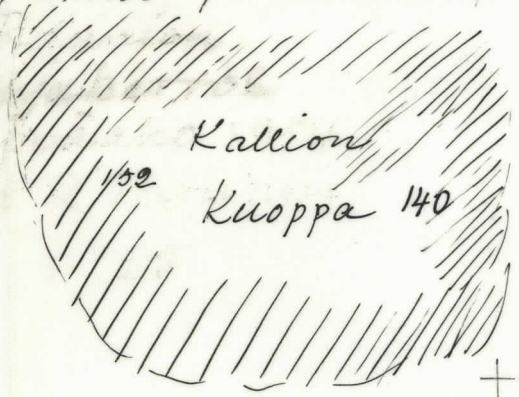 Kallion
152
Kuoppa 140